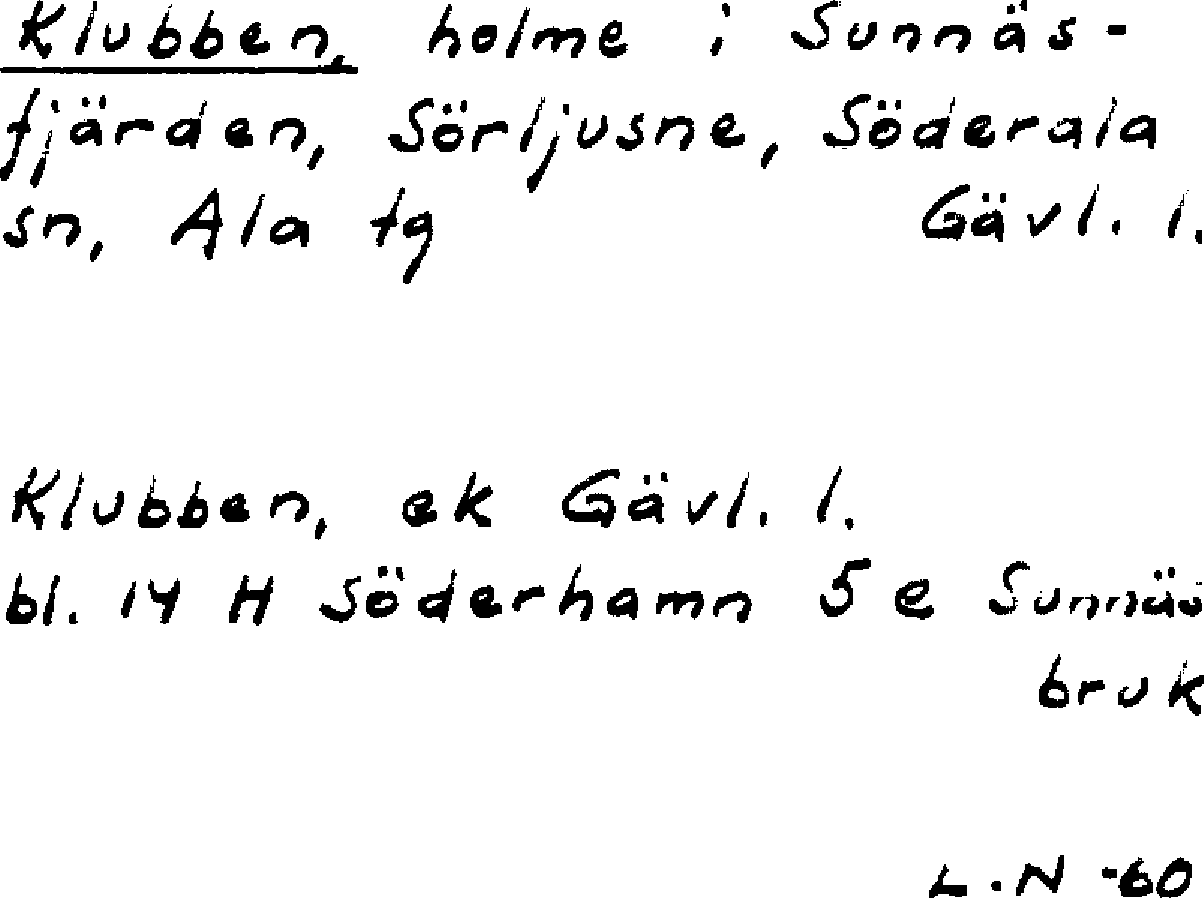 Klubben, holme i Sunnäs-
fjärden, Sörljusne, Söderala
sn, Ala tg Gävl. l.
Klubben, ek Gävl. l.
bl. 14 H Söderhamn 5 e Sunnäs
bruk
L.N -60